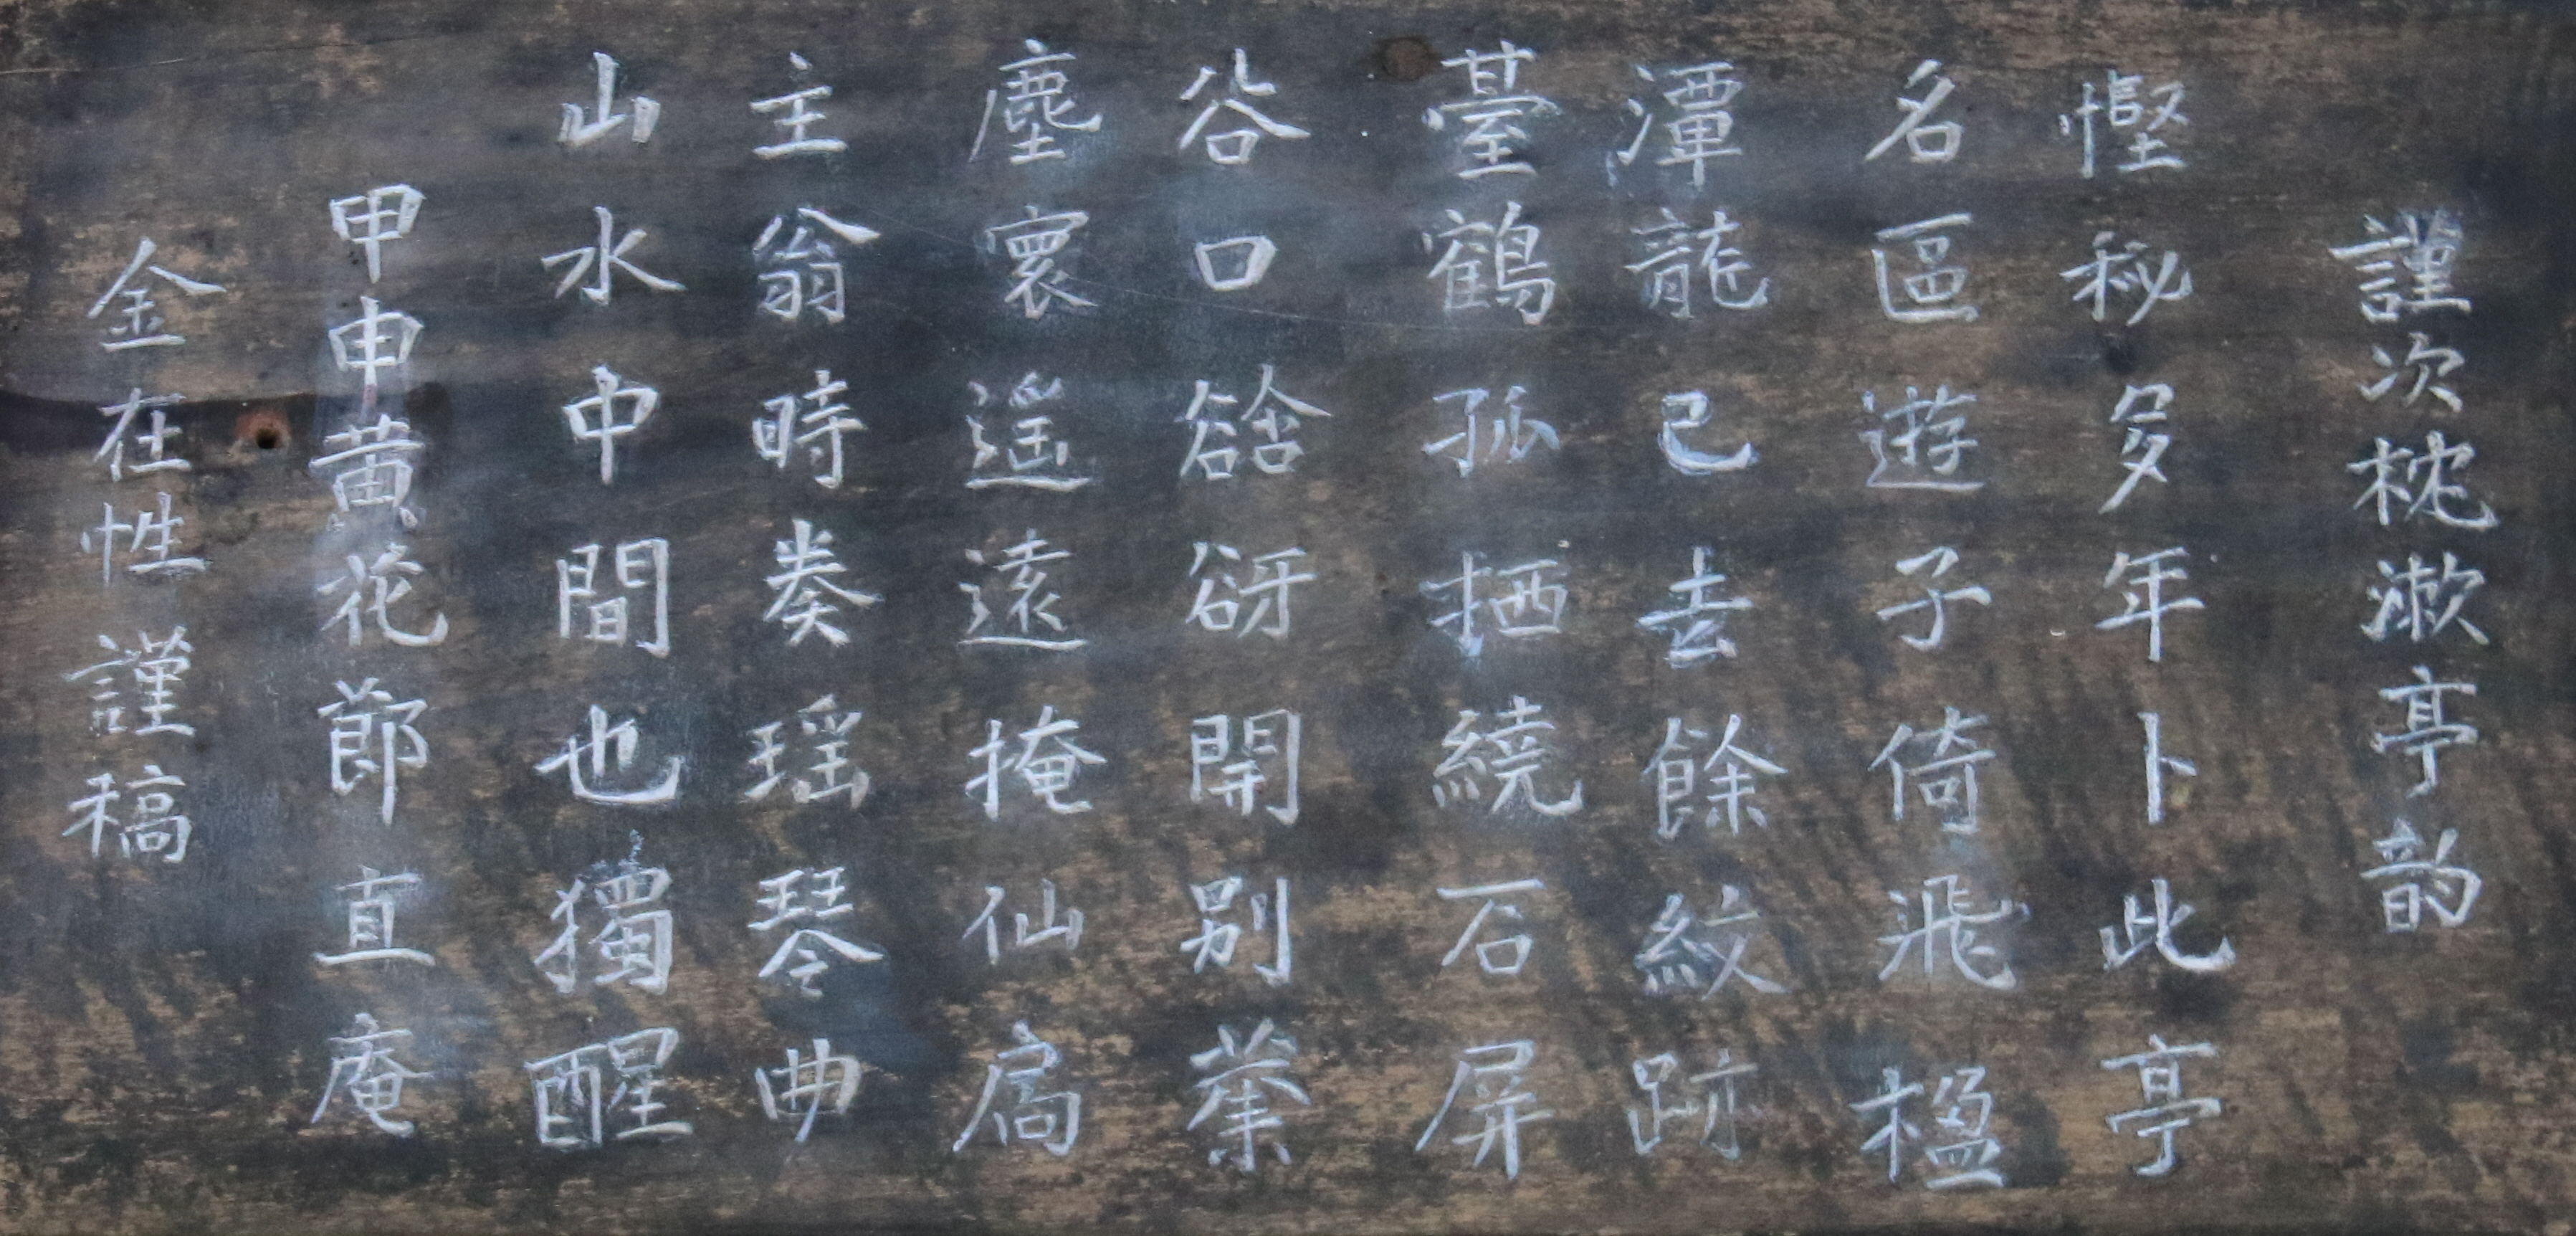 謹次枕漱亭韵
慳秘多年卜此亭
名區遊子倚飛楹
潭龍已去餘紋跡
臺鶴孤栖繞石屛
谷口谽谺開別業
塵寰遥遠掩仙扃
主翁時奏瑶琴曲
山水中間也獨醒
甲申黄花節直庵
金在性謹稿